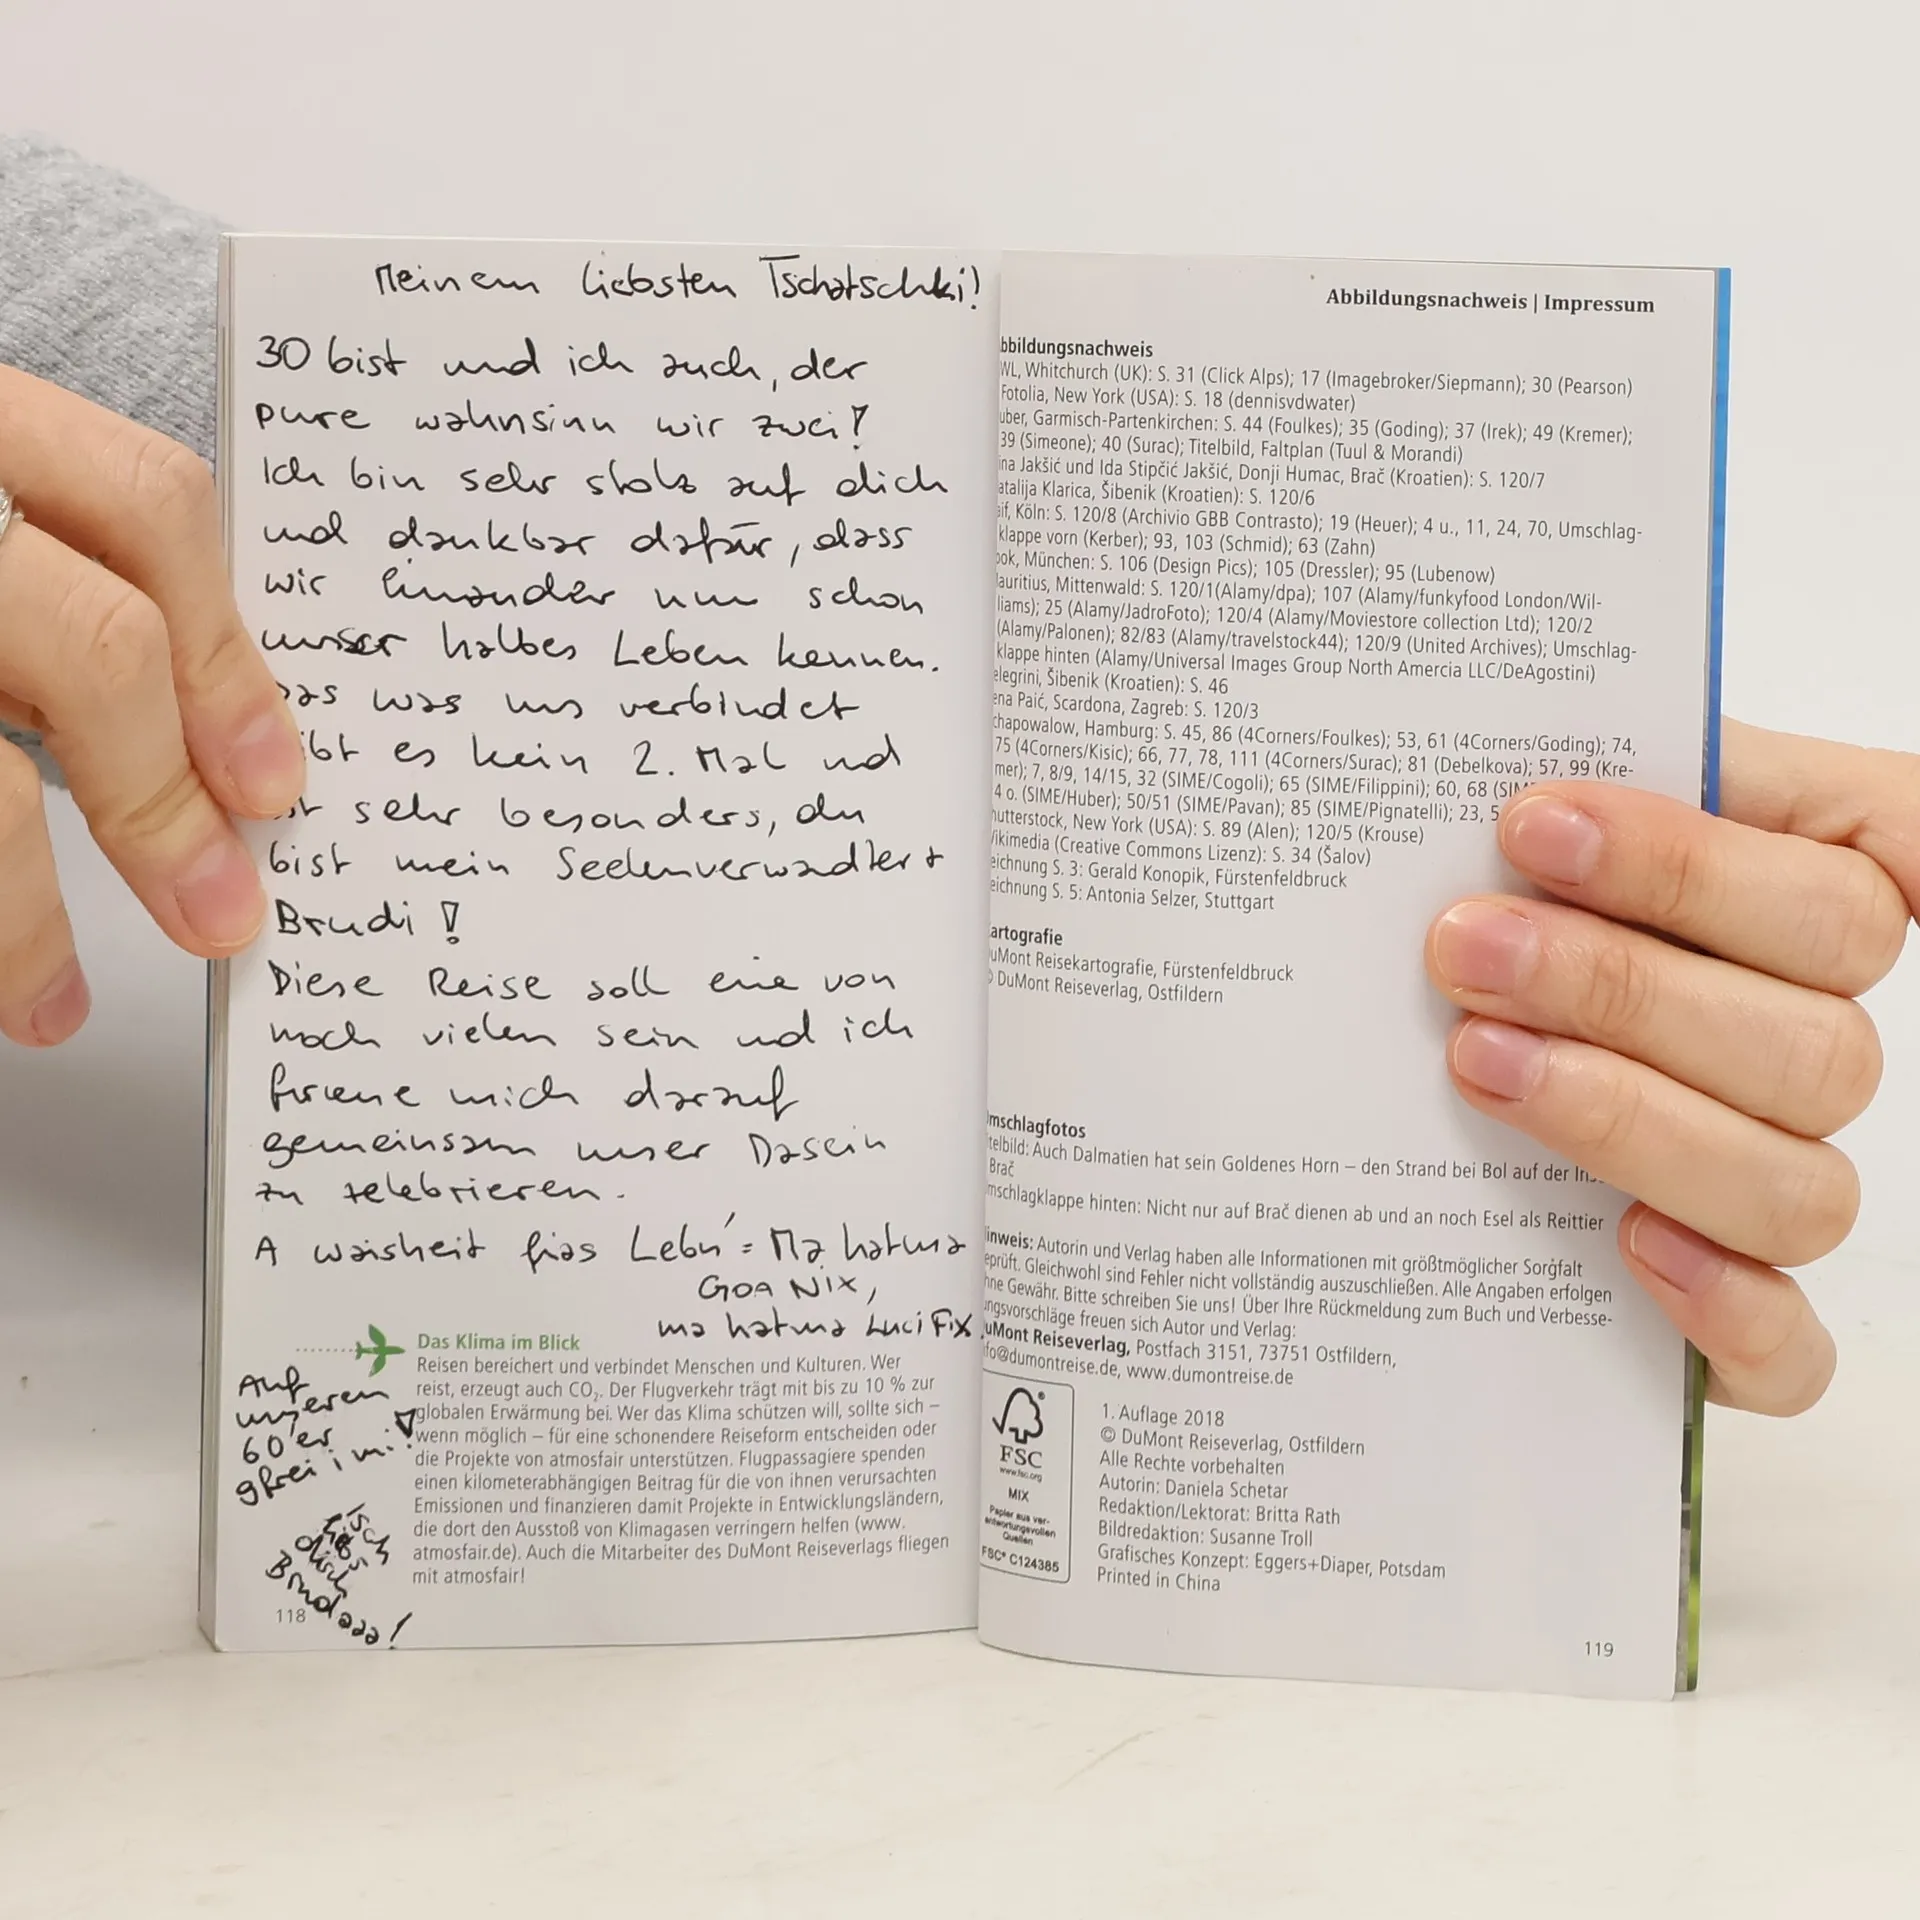 Meinem liebsten Tschatschki!
30 bist und ich auch, der
pure wahnsinn wir zwei!
Ich bin sehr stolz auf dich
und dankbar dafür, dass
wir einander nun schon
unser halbes Leben kennen.
was uns verbindet
es kein 2. Mal und
sehr besonders, du
bist mein Seelenverwandter +
Brudi!
Diese Reise soll eine von
noch vielen sein und ich
freue mich darauf
gemeinsam unser Dasein
zu zelebrieren.
A waisheit fias Lebn' = Ma hatma
GOA NIX,
ma hatma Luci Fix
Das Klima im Blick
Reisen bereichert und verbindet Menschen und Kulturen. Wer
reist, erzeugt auch CO₂. Der Flugverkehr trägt mit bis zu 10 % zur
globalen Erwärmung bei. Wer das Klima schützen will, sollte sich –
wenn möglich – für eine schonendere Reiseform entscheiden oder
die Projekte von atmosfair unterstützen. Flugpassagiere spenden
einen kilometerabhängigen Beitrag für die von ihnen verursachten
Emissionen und finanzieren damit Projekte in Entwicklungsländern,
die dort den Ausstoß von Klimagasen verringern helfen (www.
atmosfair.de). Auch die Mitarbeiter des DuMont Reiseverlags fliegen
mit atmosfair!
Auf
unseren
60'er
gfrei i mi!
Isch
liebs
disch
Brudaaa!
118
Abbildungsnachweis | Impressum
bbildungsnachweis
WL, Whitchurch (UK): S. 31 (Click Alps); 17 (Imagebroker/Siepmann); 30 (Pearson)
Fotolia, New York (USA): S. 18 (dennisvdwater)
uber, Garmisch-Partenkirchen: S. 44 (Foulkes); 35 (Goding); 37 (Irek); 49 (Kremer);
39 (Simeone); 40 (Surac); Titelbild, Faltplan (Tuul & Morandi)
ina Jakšić und Ida Stipčić Jakšić, Donji Humac, Brač (Kroatien): S. 120/7
atalija Klarica, Šibenik (Kroatien): S. 120/6
aif, Köln: S. 120/8 (Archivio GBB Contrasto); 19 (Heuer); 4 u., 11, 24, 70, Umschlag-
klappe vorn (Kerber); 93, 103 (Schmid); 63 (Zahn)
ook, München: S. 106 (Design Pics); 105 (Dressler); 95 (Lubenow)
auritius, Mittenwald: S. 120/1(Alamy/dpa); 107 (Alamy/funkyfood London/Wil-
liams); 25 (Alamy/JadroFoto); 120/4 (Alamy/Moviestore collection Ltd); 120/2
(Alamy/Palonen); 82/83 (Alamy/travelstock44); 120/9 (United Archives); Umschlag-
klappe hinten (Alamy/Universal Images Group North Amercia LLC/DeAgostini)
elegrini, Šibenik (Kroatien): S. 46
ena Paić, Scardona, Zagreb: S. 120/3
chapowalow, Hamburg: S. 45, 86 (4Corners/Foulkes); 53, 61 (4Corners/Goding); 74,
75 (4Corners/Kisic); 66, 77, 78, 111 (4Corners/Surac); 81 (Debelkova); 57, 99 (Kre-
mer); 7, 8/9, 14/15, 32 (SIME/Cogoli); 65 (SIME/Filippini); 60, 68
4 o. (SIME/Huber); 50/51 (SIME/Pavan); 85 (SIME/Pignatelli); 23,
hutterstock, New York (USA): S. 89 (Alen); 120/5 (Krouse)
ikimedia (Creative Commons Lizenz): S. 34 (Šalov)
eichnung S. 3: Gerald Konopik, Fürstenfeldbruck
eichnung S. 5: Antonia Selzer, Stuttgart
artografie
uMont Reisekartografie, Fürstenfeldbruck
© DuMont Reiseverlag, Ostfildern
mschlagfotos
telbild: Auch Dalmatien hat sein Goldenes Horn – den Strand bei Bol auf der
Brač
mschlagklappe hinten: Nicht nur auf Brač dienen ab und an noch Esel als Reittier
inweis: Autorin und Verlag haben alle Informationen mit größtmöglicher Sorgfalt
eprüft. Gleichwohl sind Fehler nicht vollständig auszuschließen. Alle Angaben erfolgen
hne Gewähr. Bitte schreiben Sie uns! Über Ihre Rückmeldung zum Buch und Verbesse-
ungsvorschläge freuen sich Autor und Verlag:
uMont Reiseverlag, Postfach 3151, 73751 Ostfildern,
nfo@dumontreise.de, www.dumontreise.de
FSC
www.fsc.org
MIX
Papier aus ver-
antwortungsvollen
Quellen
FSC® C124385
1. Auflage 2018
© DuMont Reiseverlag, Ostfildern
Alle Rechte vorbehalten
Autorin: Daniela Schetar
Redaktion/Lektorat: Britta Rath
Bildredaktion: Susanne Troll
Grafisches Konzept: Eggers+Diaper, Potsdam
Printed in China
119